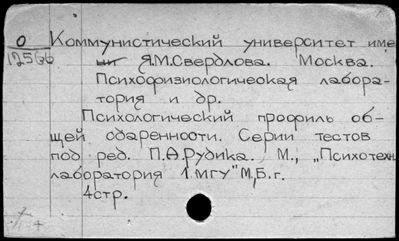 О Коммунистический университет име
12566 ни Я.М.Свердлова. Москва.
Психофизиологическая лабора-
тория и др.
Психологический профиль об-
щей одаренности. Серии тестов
под ред. П.А.Рудика. М., „Психотехн.
лаборатория 1.МГУ" М, Б.г.
4стр.